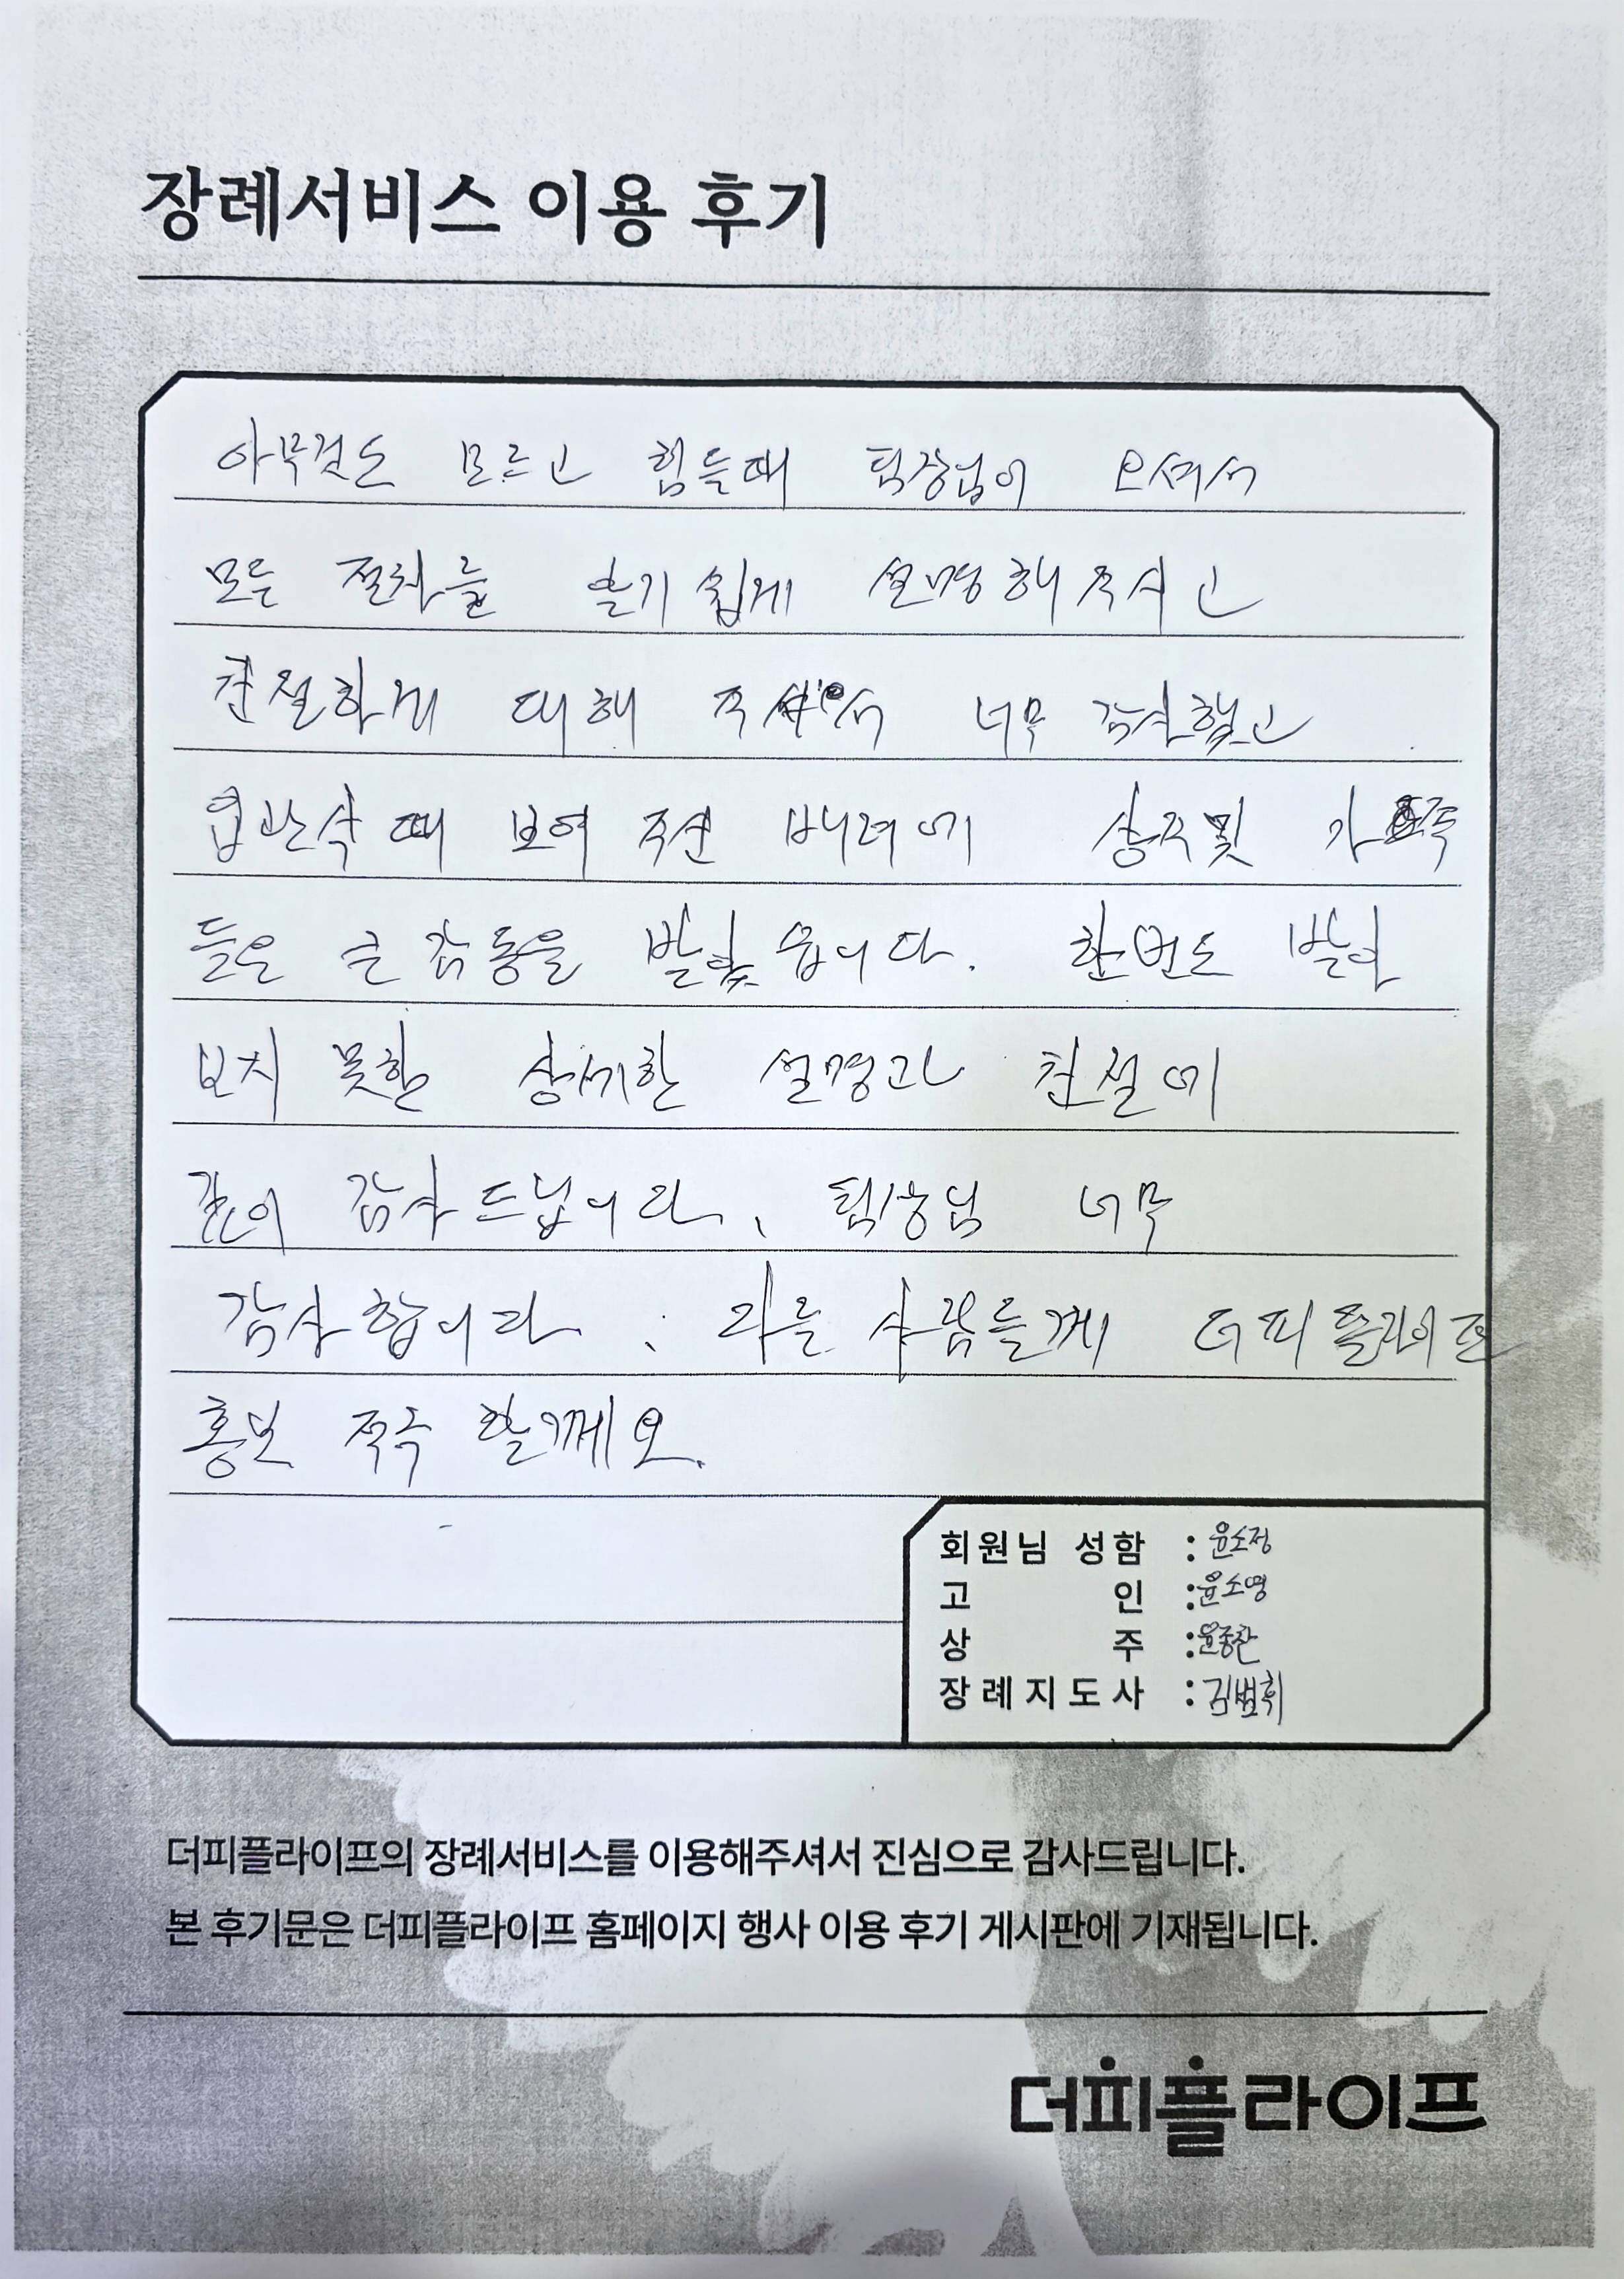 장례서비스 이용 후기
아무것도 모르고 힘들때 팀장님이 오셔서
모든 절차를 알기 쉽게 설명해 주시고
친절하게 대해 주셔서 너무 감사했고
입관식 때 보여 주신 배려에 상주및 가족
들은 큰 감동을 받았습니다. 한번도 받아
보지 못한 상세한 설명과 친절에
같이 감사드립니다. 팀장님 너무
감사합니다. 다른 사람들께 더피플라이프
홍보 적극 할께요.
회원님 성함 : 윤소정
고 인 : 윤소영
상 주 : 윤종찬
장례지도사 : 김범휘
더피플라이프의 장례서비스를 이용해주셔서 진심으로 감사드립니다.
본 후기문은 더피플라이프 홈페이지 행사 이용 후기 게시판에 기재됩니다.
더피플라이프